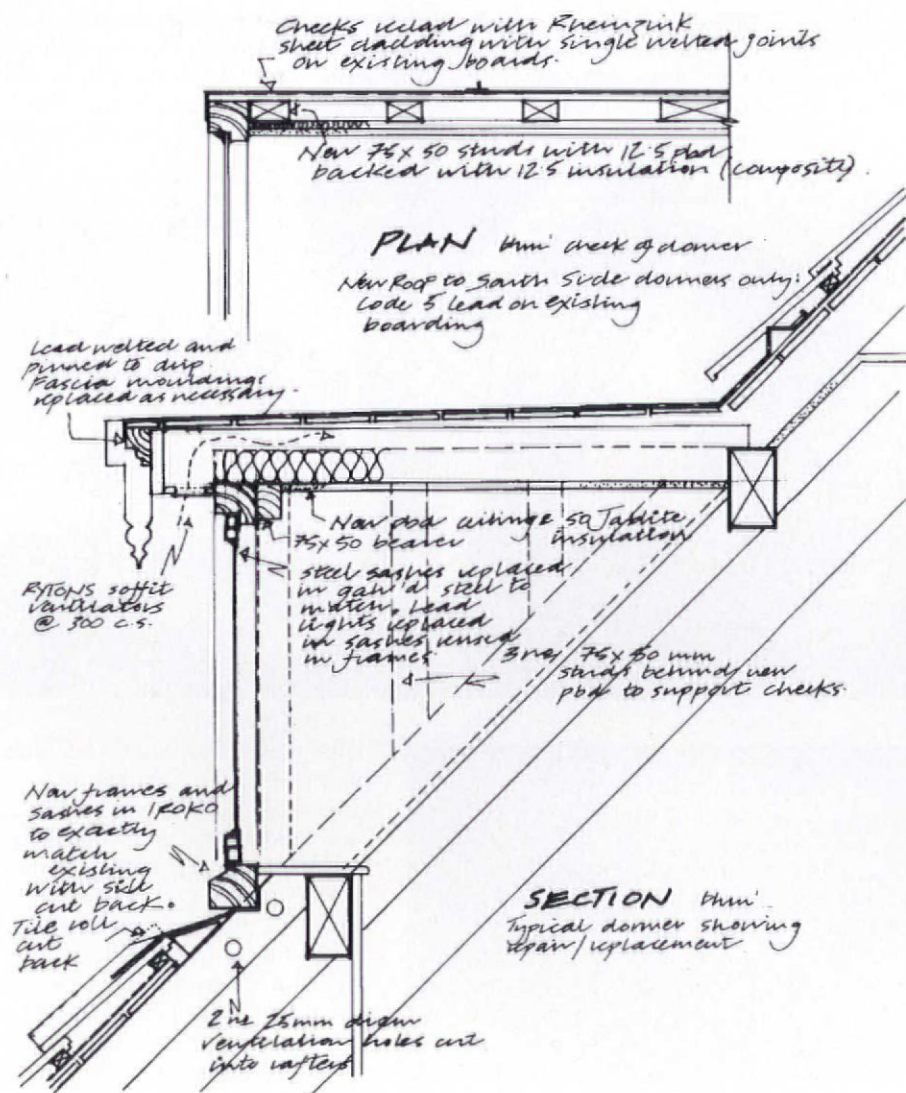 Cheeks reclad with Rheinzink
sheet cladding with single welted joints
on existing boards.
New 75x50 studs with 12.5 pbd
backed with 12.5 insulation (composite).
PLAN thro' cheek of dormer
New Roof to South Side dormers only:
Code 5 lead on existing
boarding
Lead welted and
pinned to drip.
Fascia mouldings
replaced as necessary.
New pbd ceiling & 50 Jablite
insulation
75x50 bearer
RYTONS soffit
ventilators
@ 300 c.s.
Steel sashes replaced
in galv'd steel to
match. Lead
lights replaced
in sashes reused
in frames.
3 ne/ 75x50 mm
studs behind new
pbd to support cheeks.
New frames and
sashes in IROKO
to exactly
match
existing
with sill
cut back.
Tile roll
cut
back
SECTION thro'
Typical dormer showing
repair/replacement
2 ne 25mm diam
ventilation holes cut
into rafters